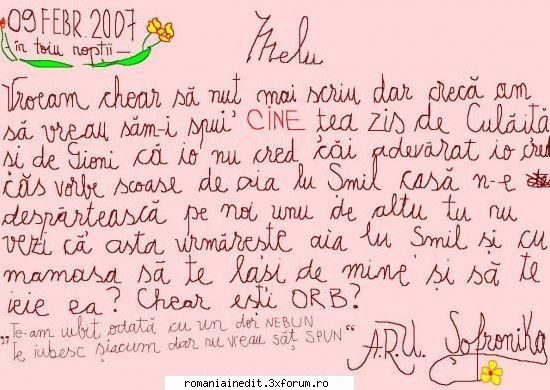 09 FEBR. 2007
- în toiu nopții -
Melu
Vroeam chear să nuț mai scriu dar crecă am
să vreau săm-i spui CINE țea zis de Culăiță
și de Gioni că io nu cred căi adevărat io cred
căs vorbe scoase de aia lu Smil casă n-e
despărtească pe noi unu de altu tu nu
vezi că asta urmărește aia lu Smil și cu
mamasa să te lași de mine și să te
ieie ea? Chear ești ORB?
"Te-am iubit odată cu un dor NEBUN
Te iubesc șiacum dar nu vreau săț SPUN"
A.R.U. Sofronika
romaniainedit.3xforum.ro